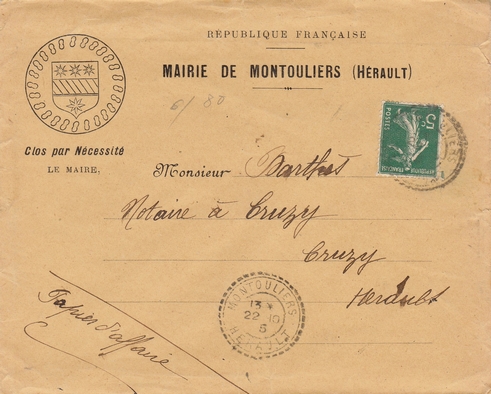 RÉPUBLIQUE FRANÇAISE
MAIRIE DE MONTOULIERS (HÉRAULT)
6/80
5c
POSTES
Clos par Nécessité
LE MAIRE,
Monsieur Barthes
Notaire à Cruzy
Cruzy
Hérault
MONTOULIERS
13 *
22 10
HERAULT
Papier d'affaire